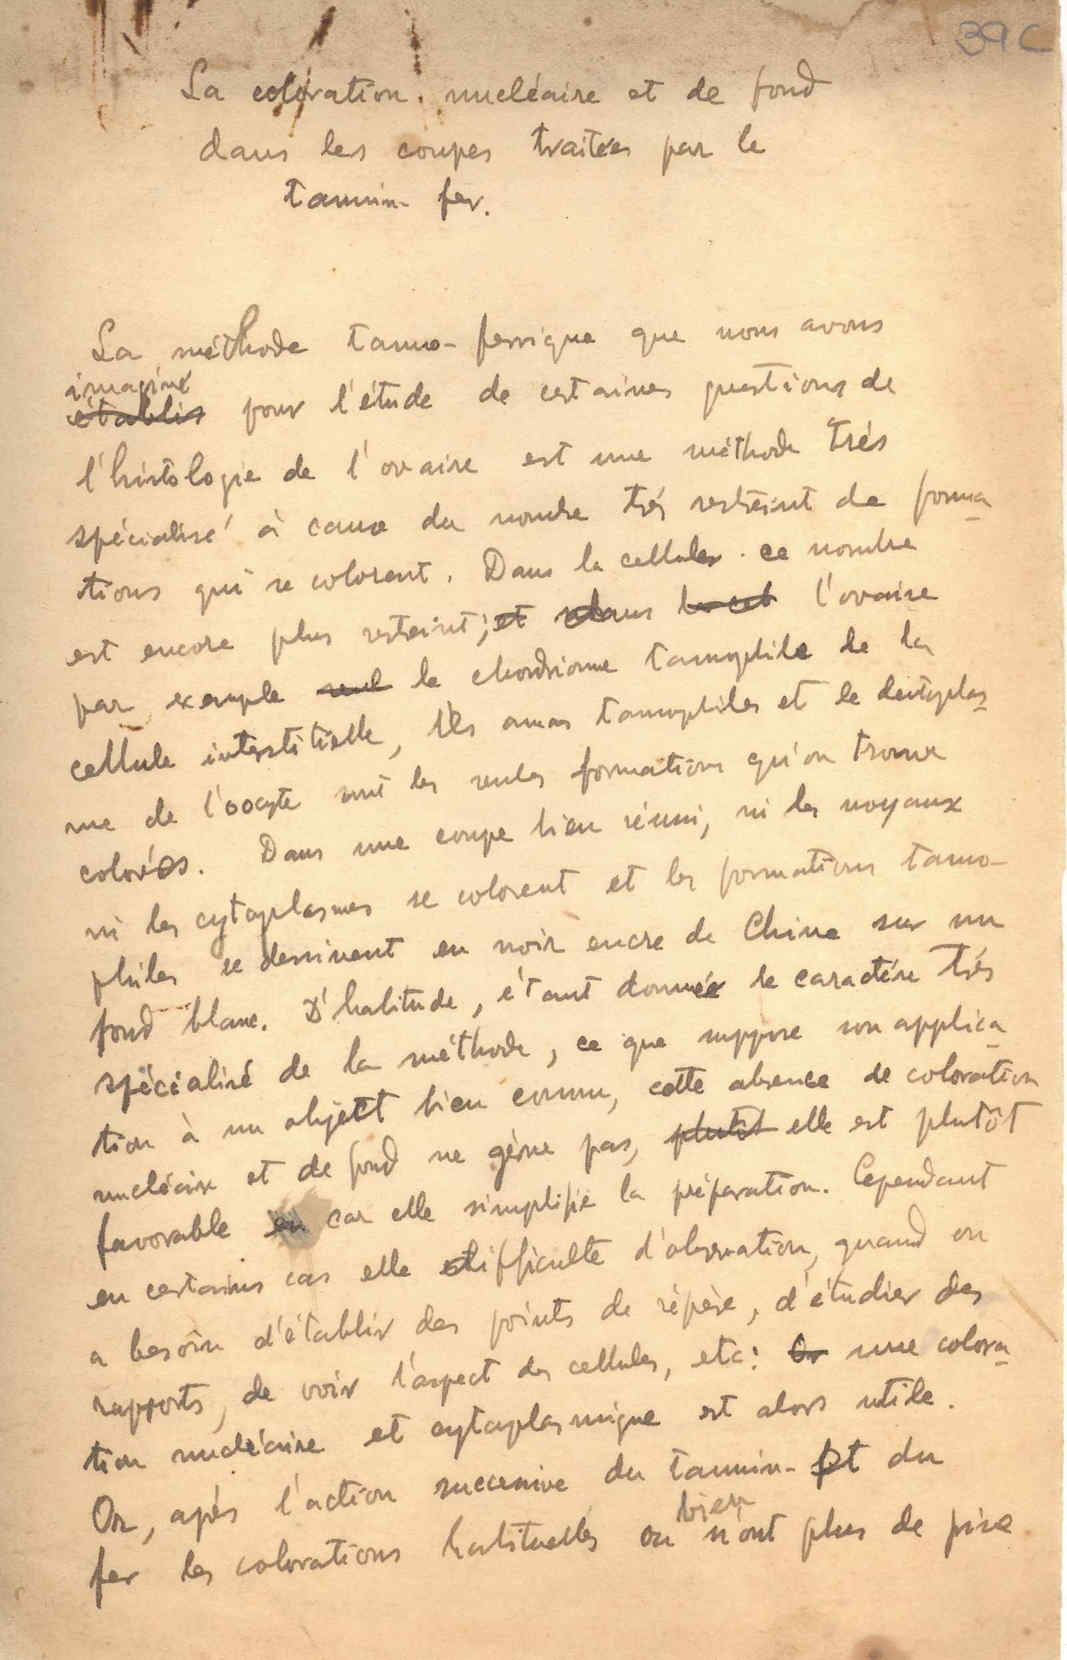 39 C
La coloration nucléaire et de fond
dans les coupes traitées par le
tannin-fer.
La méthode tanno-ferrique que nous avons
imaginé
établis pour l'étude de certaines questions de
l'histologie de l'ovaire est une méthode trés
spécialisé à cause du nombre trés restreint de forma-
tions qui se colorent. Dans la cellules ce nombre
est encore plus restreint; et dans l'ovaire
par exemple seul le chondriome tanophile de la
cellule interstitielle, les amas tanophiles et le deutoplas-
me de l'oocyte sont les seules formations qu'on trouve
colorés. Dans une coupe bien réussi, ni les noyaux
ni les cytoplasmes se colorent et les formations tano-
philes se dessinent en noir encre de Chine sur un
fond blanc. D'habitude, étant donnée le caractére trés
spécialisé de la méthode, ce que suppose son applica-
tion à un objett bien connu, cette absence de coloration
nucléaire et de fond ne gêne pas, plutôt elle est plutôt
favorable en car elle simplifie la préparation. Cependant
en certains cas elle difficulte d'observation, quand on
a besoin d'établir des points de répère, d'étudier des
rapports, de voir l'aspect des cellules, etc: Or une colora-
tion nucléaire et cytoplasmique est alors utile.
Or, après l'action successive du tannin et du
bien
fer les colorations habituelles ou n'ont plus de prise